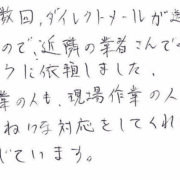 数回,ダイレクトメールが送
ので,近隣の業者さんで
うに依頼しました。
業の人も、現場作業の人
ねいな対応をしてくれ
じています。